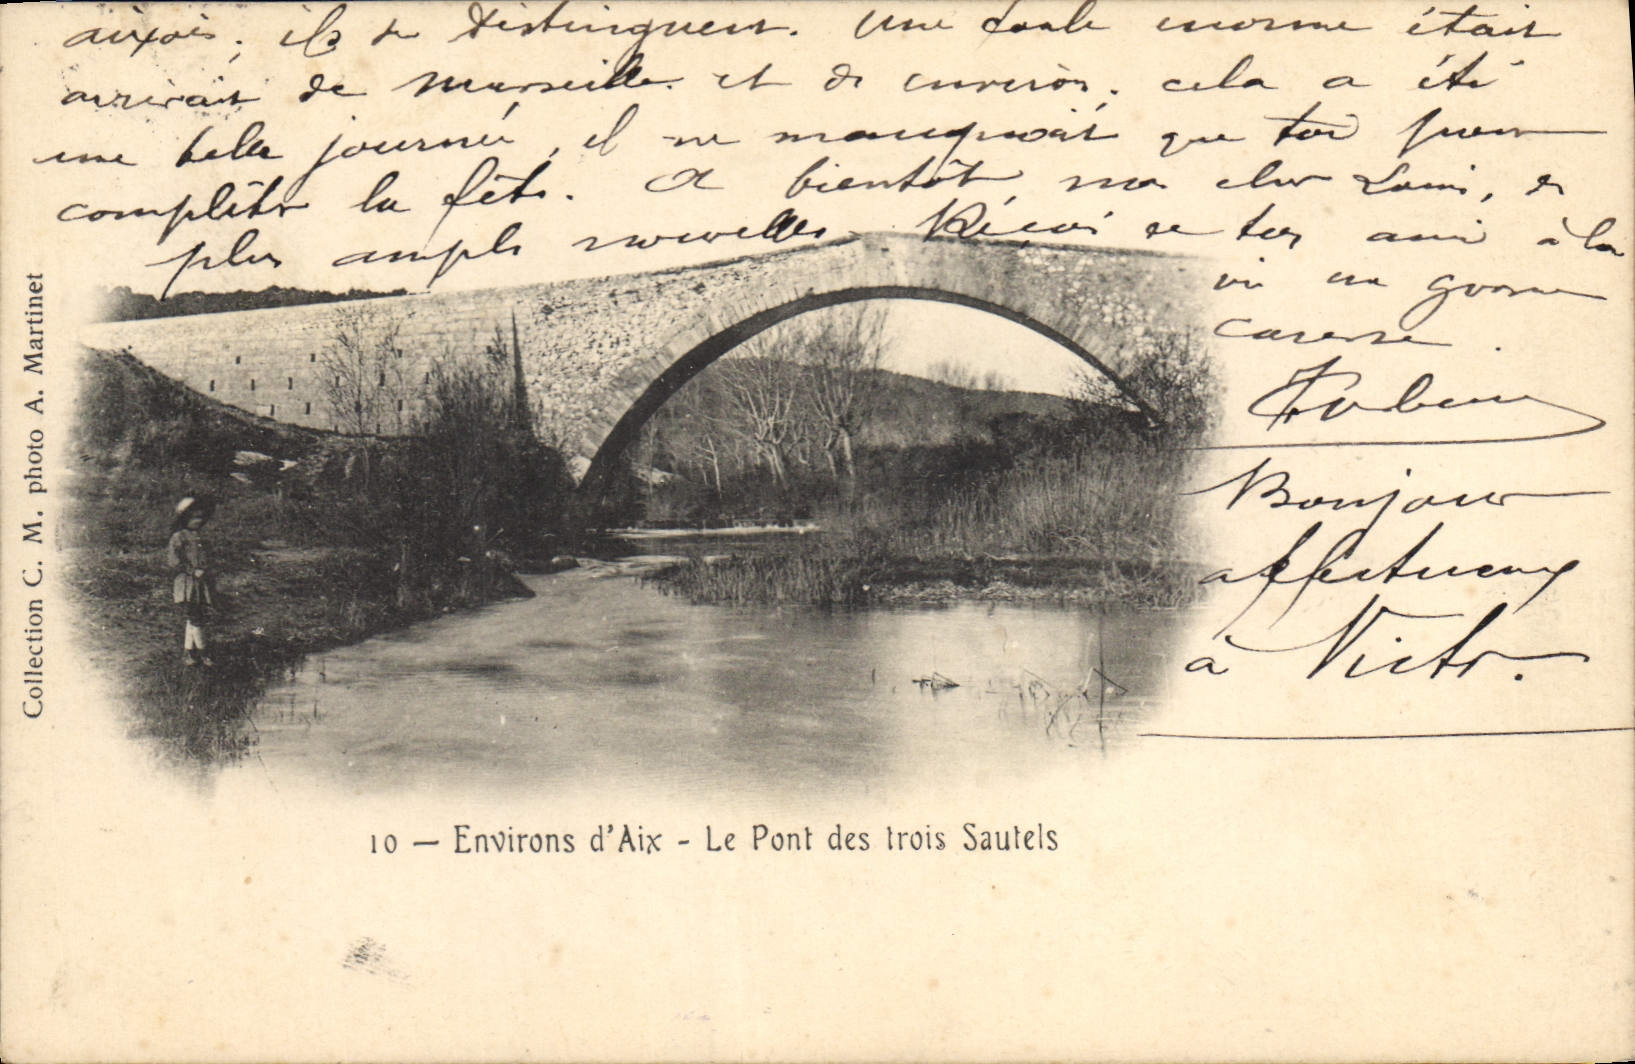 aixois, ils se distinguent. Une foule enorme était
arrivait de Marseille et de environ. cela a été
une belle journée, il ne manquait que toi pour
complêter la fête. A bientôt mon cher Louis, de
plus ample nouvelles. Réçois de ton ami à la
vie un grosse
caresse.
Bonjour
affectueux
à Victor.
Collection C. M. photo A. Martinet
10 — Environs d'Aix - Le Pont des trois Sautels